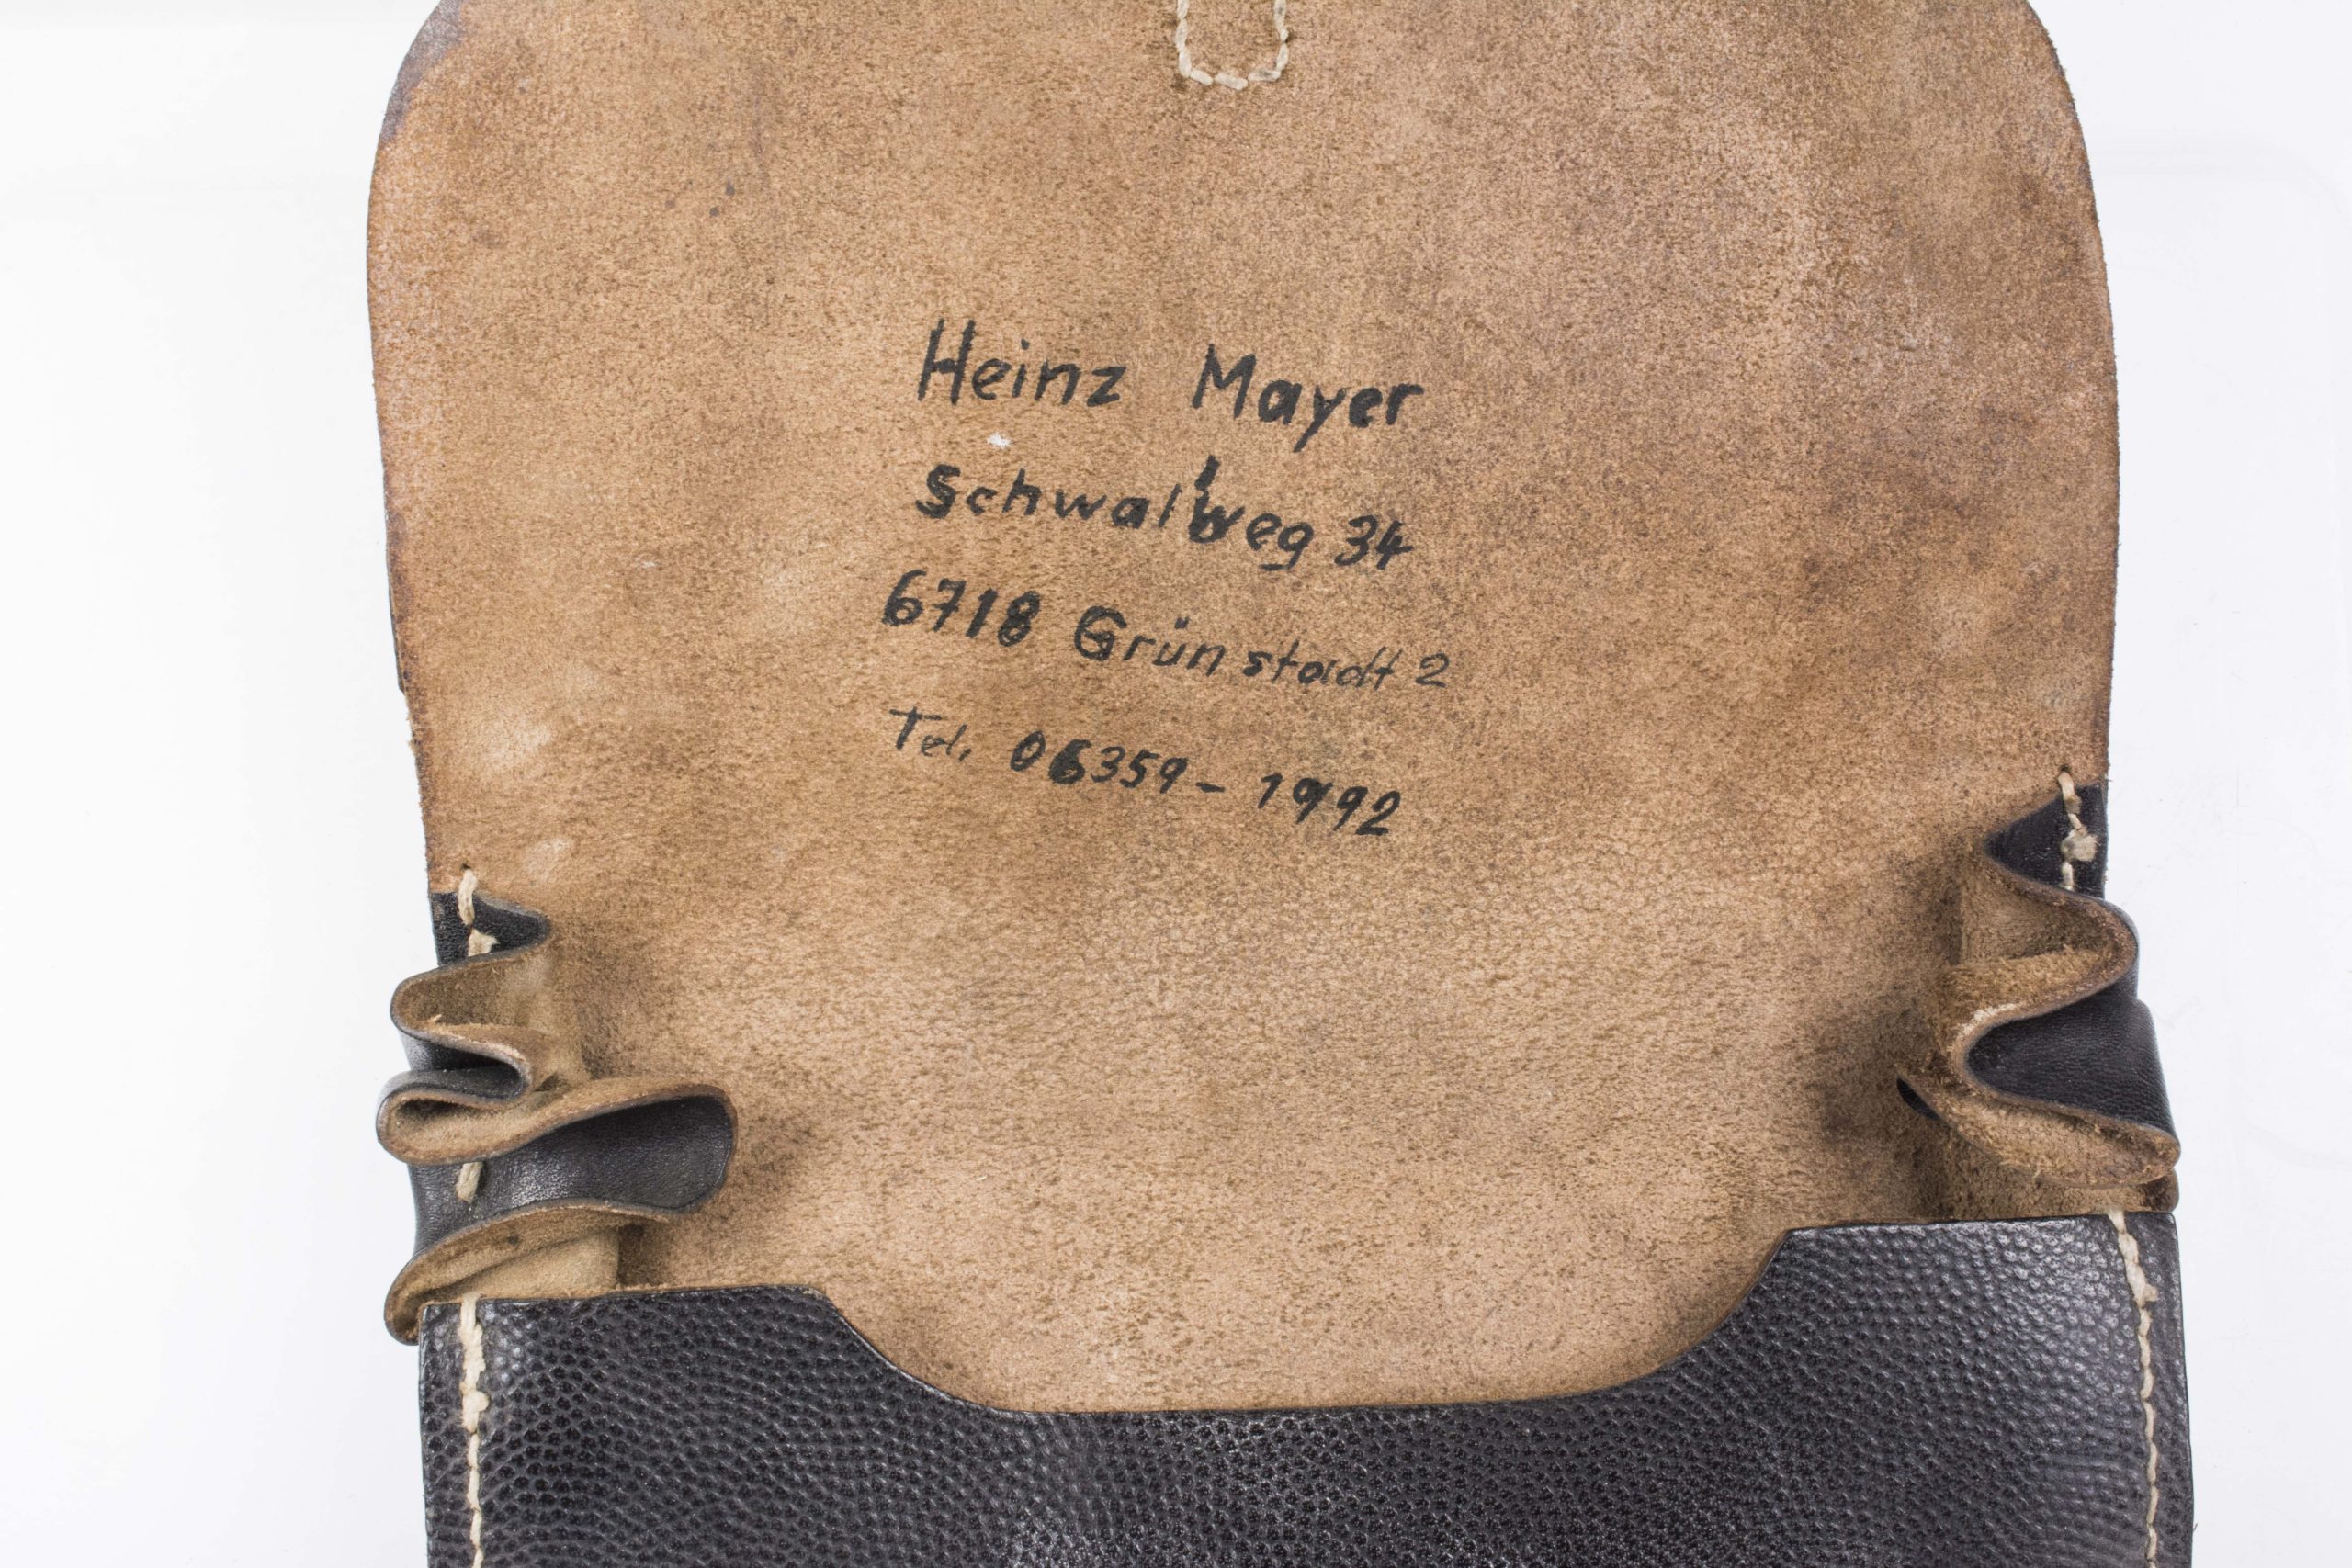 Heinz Mayer
Schwalbweg 34
6718 Grünstadt 2
Tel. 06359 - 1992